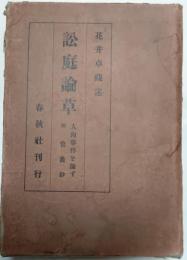 花井卓蔵著
訟庭論草
人肉事件を論ず
春秋社刊行